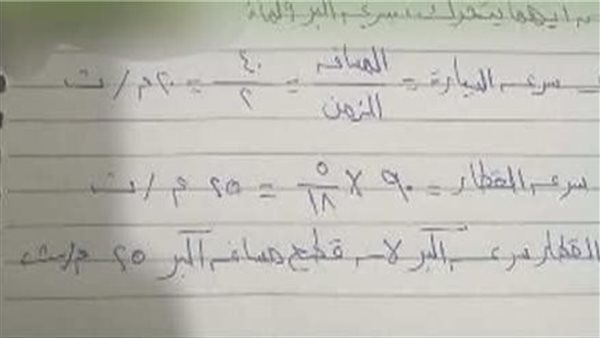 أيهما يتحرك بسرعة أكبر ولماذا
سرعه السيارة = المسافه / الزمن = ٤٠ / ٢ = ٢٠ م / ث
سرعه القطار = ٩٠ × ٥ / ١٨ = ٢٥ م / ث
القطار سرعته أكبر لأنه قطع مسافه أكبر ٢٥ م/ث